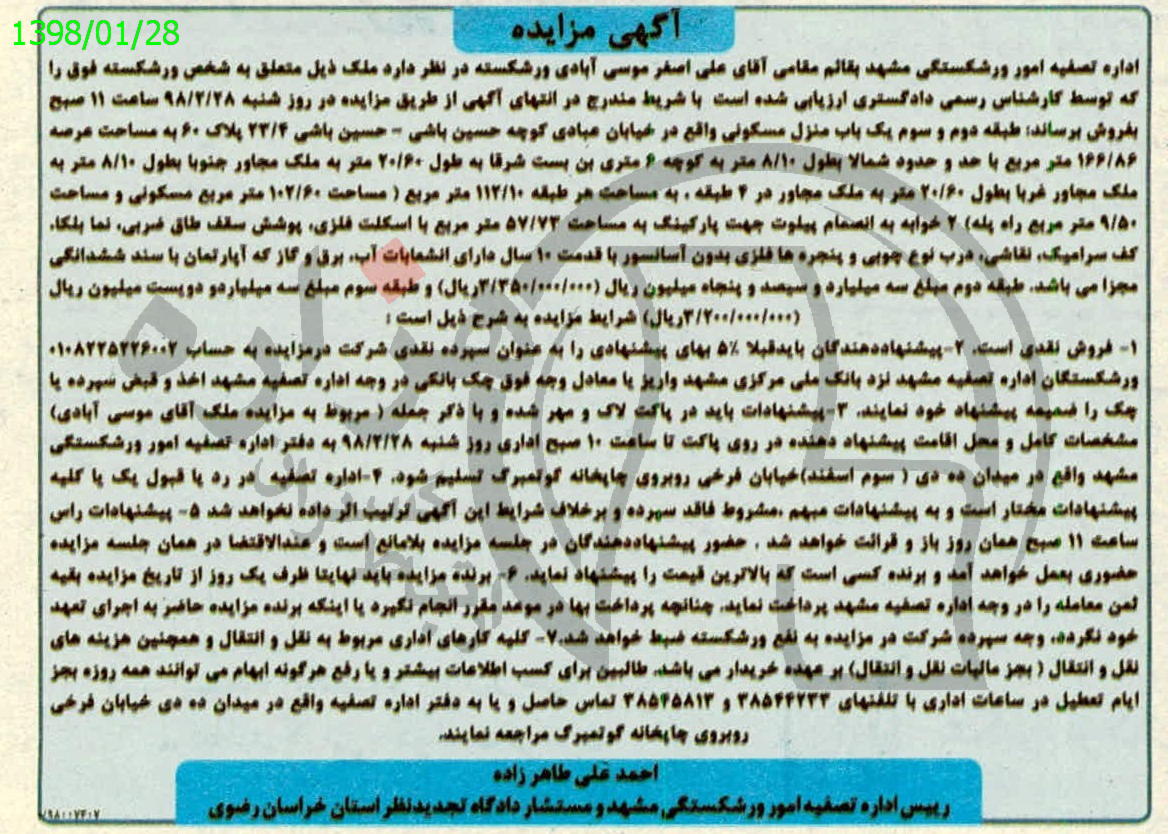 1398/01/28
آگهی مزایده
اداره تصفیه امور ورشکستگی مشهد بقائم مقامی آقای علی اصغر موسی آبادی ورشکسته در نظر دارد ملک ذیل متعلق به شخص ورشکسته فوق را
که توسط کارشناس رسمی دادگستری ارزیابی شده است با شریط مندرج در انتهای آگهی از طریق مزایده در روز شنبه ۹۸/۲/۲۸ ساعت ۱۱ صبح
بفروش برساند: طبقه دوم و سوم یک باب منزل مسکونی واقع در خیابان عبادی کوچه حسین باشی - حسین باشی ۲۳/۴ پلاک ۶۰ به مساحت عرصه
۱۶۶/۸۶ متر مربع با حد و حدود شمالا بطول ۸/۱۰ متر به کوچه ۶ متری بن بست شرقا به طول ۲۰/۶۰ متر به ملک مجاور جنوبا بطول ۸/۱۰ متر به
ملک مجاور غربا بطول ۲۰/۶۰ متر به ملک مجاور در ۴ طبقه ، به مساحت هر طبقه ۱۱۲/۱۰ متر مربع ( مساحت ۱۰۲/۶۰ متر مربع مسکونی و مساحت
۹/۵۰ متر مربع راه پله) ۲ خوابه به انضمام پیلوت جهت پارکینگ به مساحت ۵۷/۷۳ متر مربع با اسکلت فلزی، پوشش سقف طاق ضربی، نما بلکا،
کف سرامیک، نقاشی، درب نوع چوبی و پنجره ها فلزی بدون آسانسور با قدمت ۱۰ سال دارای انشعابات آب، برق و گاز که آپارتمان با سند ششدانگی
مجزا می باشد. طبقه دوم مبلغ سه میلیارد و سیصد و پنجاه میلیون ریال (۳/۳۵۰/۰۰۰/۰۰۰ریال) و طبقه سوم مبلغ سه میلیاردو دویست میلیون ریال
(۳/۲۰۰/۰۰۰/۰۰۰ریال) شرایط مزایده به شرح ذیل است :
۱- فروش نقدی است. ۲-پیشنهاددهندگان بایدقبلا ۵٪ بهای پیشنهادی را به عنوان سپرده نقدی شرکت درمزایده به حساب ۰۱۰۸۲۲۵۲۲۶۰۰۲
ورشکستگان اداره تصفیه مشهد نزد بانک ملی مرکزی مشهد واریز یا معادل وجه فوق چک بانکی در وجه اداره تصفیه مشهد اخذ و قبض سپرده یا
چک را ضمیمه پیشنهاد خود نمایند. ۳-پیشنهادات باید در پاکت لاک و مهر شده و با ذکر جمله ( مربوط به مزایده ملک آقای موسی آبادی)
مشخصات کامل و محل اقامت پیشنهاد دهنده در روی پاکت تا ساعت ۱۰ صبح اداری روز شنبه ۹۸/۲/۲۸ به دفتر اداره تصفیه امور ورشکستگی
مشهد واقع در میدان ده دی ( سوم اسفند)خیابان فرخی روبروی چاپخانه گوتمبرگ تسلیم شود. ۴-اداره تصفیه در رد یا قبول یک یا کلیه
پیشنهادات مختار است و به پیشنهادات مبهم ،مشروط فاقد سپرده و برخلاف شرایط این آگهی ترتیب اثر داده نخواهد شد ۵- پیشنهادات راس
ساعت ۱۱ صبح همان روز باز و قرائت خواهد شد . حضور پیشنهاددهندگان در جلسه مزایده بلامانع است و عندالاقتضا در همان جلسه مزایده
حضوری بعمل خواهد آمد و برنده کسی است که بالاترین قیمت را پیشنهاد نماید. ۶- برنده مزایده باید نهایتا ظرف یک روز از تاریخ مزایده بقیه
ثمن معامله را در وجه اداره تصفیه مشهد پرداخت نماید. چنانچه پرداخت بها در موعد مقرر انجام نگیرد یا اینکه برنده مزایده حاضر به اجرای تعهد
خود نگردد، وجه سپرده شرکت در مزایده به نفع ورشکسته ضبط خواهد شد.۷- کلیه کارهای اداری مربوط به نقل و انتقال و همچنین هزینه های
نقل و انتقال ( بجز مالیات نقل و انتقال) بر عهده خریدار می باشد. طالبین برای کسب اطلاعات بیشتر و یا رفع هرگونه ابهام می توانند همه روزه بجز
ایام تعطیل در ساعات اداری با تلفنهای ۳۸۵۴۴۲۳۳ و ۳۸۵۴۵۸۱۳ تماس حاصل و یا به دفتر اداره تصفیه واقع در میدان ده دی خیابان فرخی
روبروی چاپخانه گوتمبرگ مراجعه نمایند.
احمد علی طاهر زاده
رییس اداره تصفیه امور ورشکستگی مشهد و مستشار دادگاه تجدیدنظر استان خراسان رضوی
/۹۸۰۰۷۴۰۷